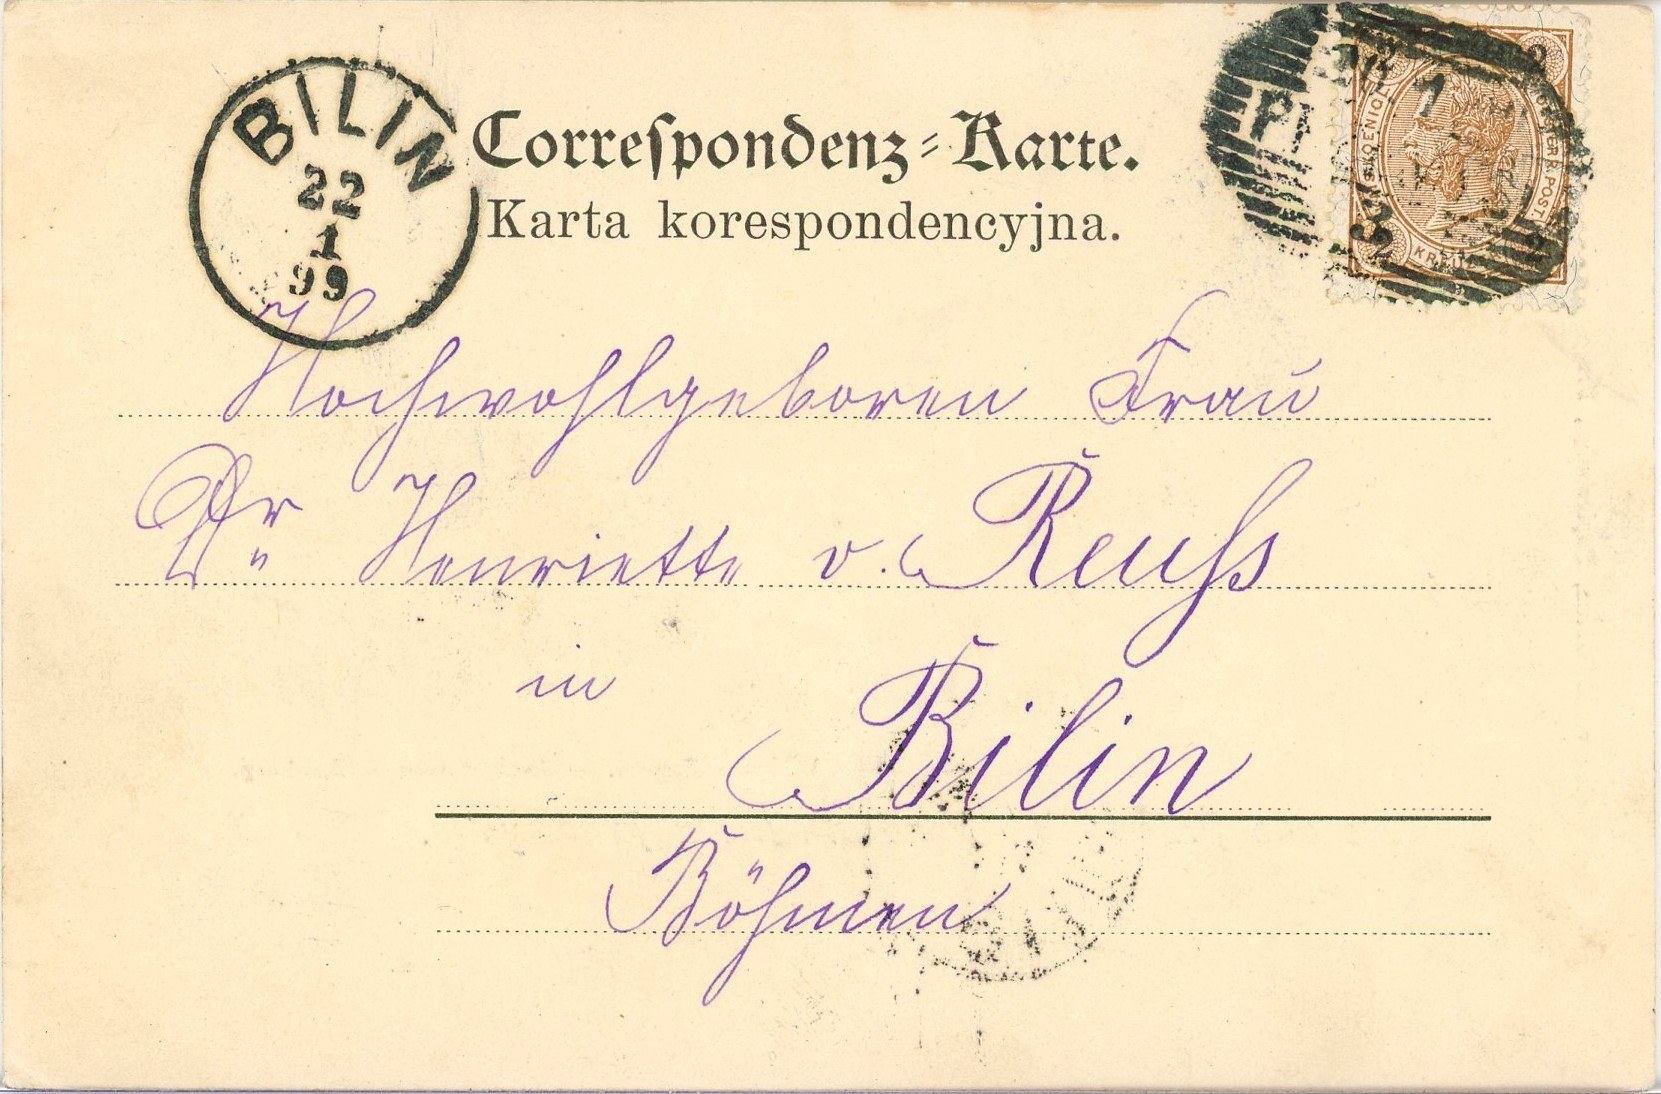 BILIN
22
1
99
Correſpondenz-Karte.
Karta korespondencyjna.
Hochwohlgeboren Frau
Dr Henriette v. Reuſs
in
Bilin
Böhmen